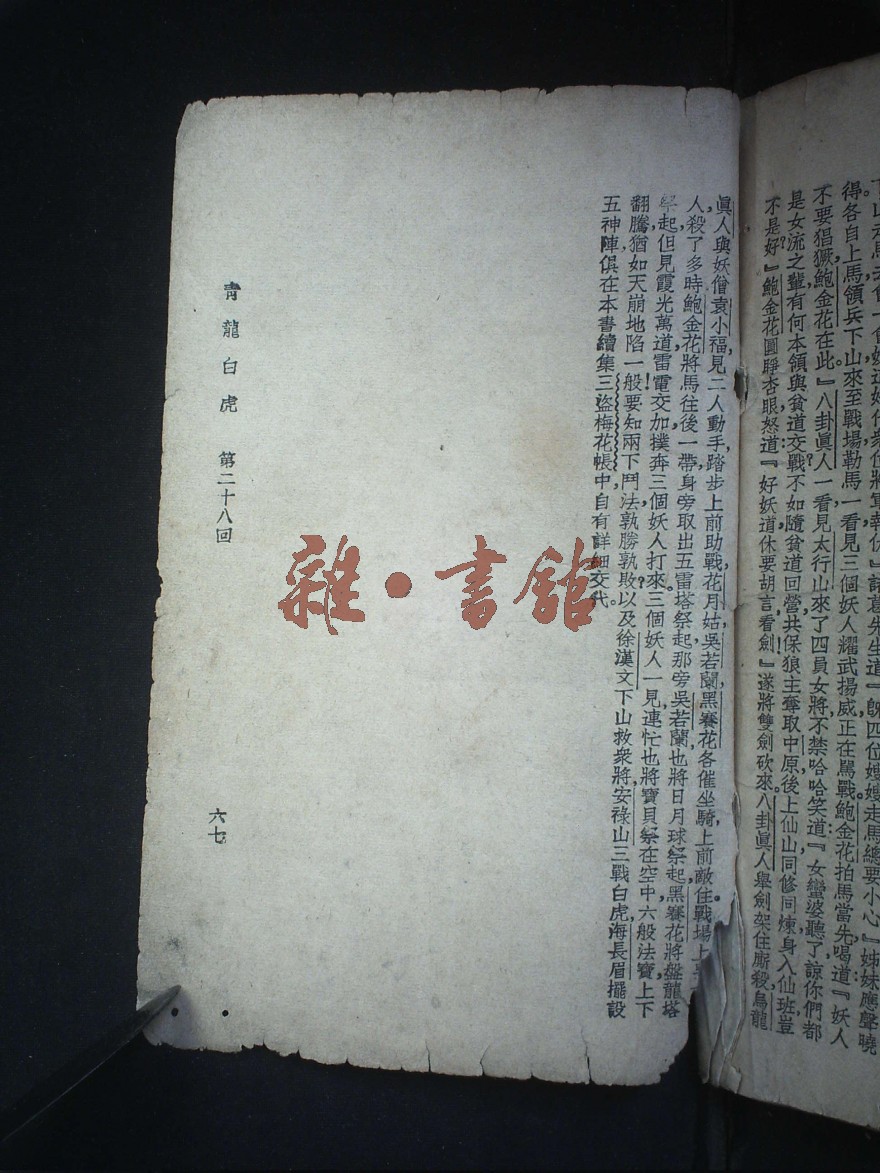 得各自上馬領兵下山來至戰場勒馬一看見三個妖人耀武揚威正在罵戰鮑金花拍馬當先喝道『妖人
不要猖獗鮑金花在此』八卦眞人一看見太行山來了四員女將不禁哈哈笑道『女蠻婆聽了諒你們都
是女流之輩有何本領與貧道交戰不如隨貧道回營共保狼主奪取中原後上仙山同修同煉身入仙班豈
不是好』鮑金花圓睜杏眼怒道『好妖道休要胡言看劍』遂將雙劍砍來八卦眞人舉劍架住廝殺烏龍
眞人與妖僧袁小福見二人動手踏步上前助戰花月姑吳若蘭黑賽花各催坐騎上前敵住戰場上
人殺了多時鮑金花將馬往後一帶身旁取出五雷塔祭起那旁吳若蘭也將日月球祭起黑賽花將盤龍塔
祭起但見霞光萬道雷電交加撲奔三個妖人打來三個妖人一見連忙也將寶貝祭在空中六般法寶上下
翻騰猶如天崩地陷一般要知兩下鬥法孰勝孰敗以及徐漢文下山救衆將安祿山三戰白虎海長眉擺設
五神陣俱在本書續集三盜梅花帳中自有詳細交代。
靑龍白虎 第二十八回
六七
雜·書舘